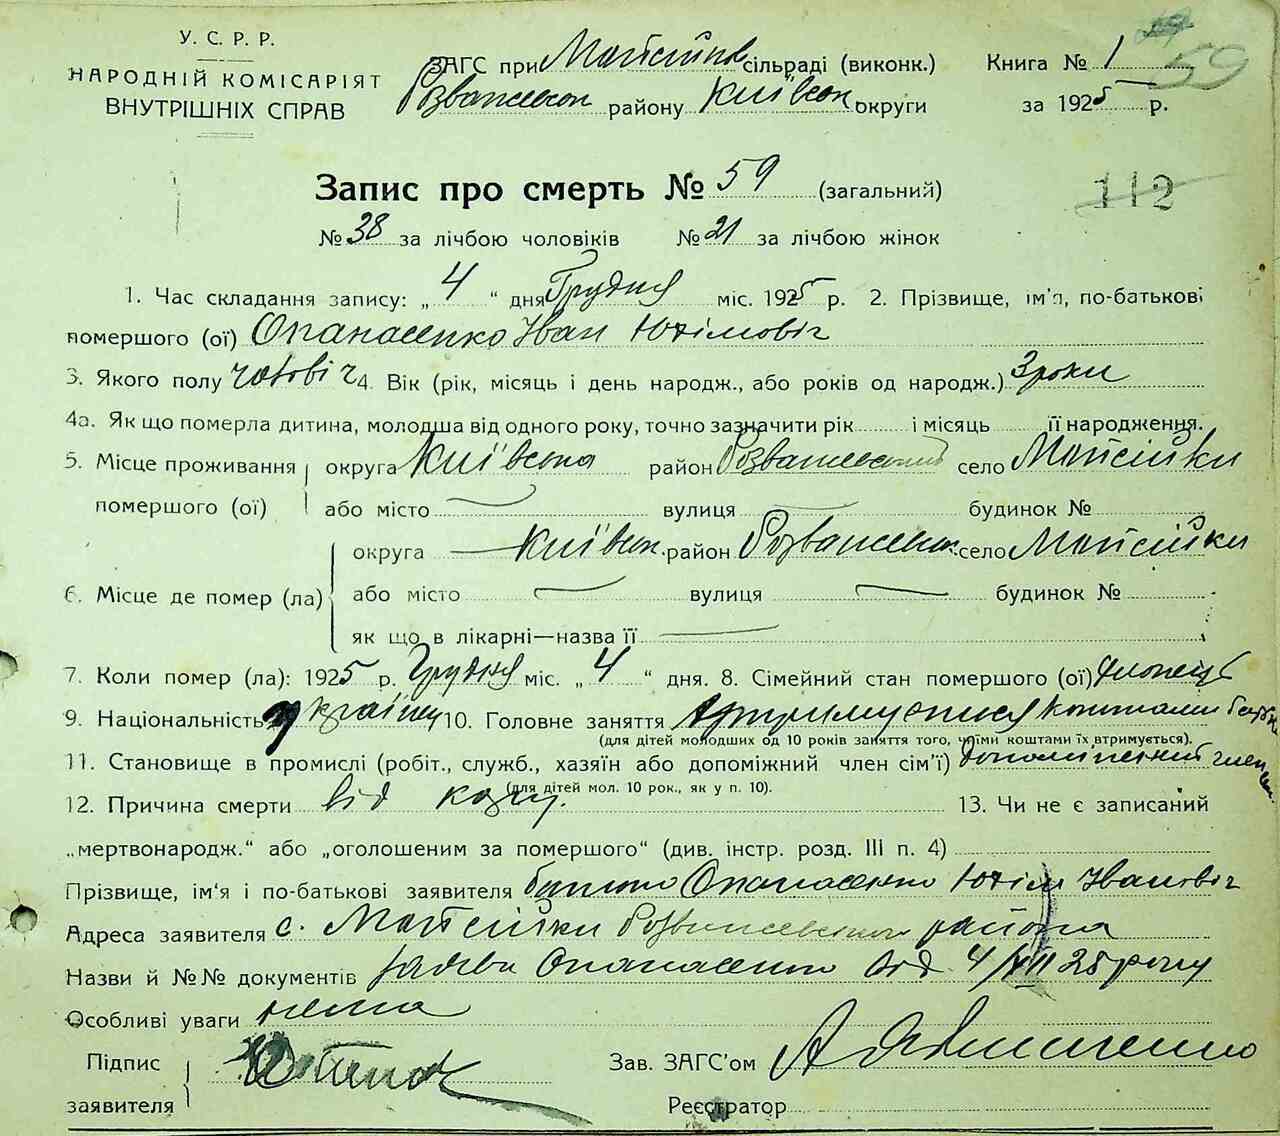 У. С. Р. Р.
НАРОДНІЙ КОМІСАРІЯТ
ВНУТРІШНІХ СПРАВ
ЗАГС при Мойсійк сільраді (виконк.)
Розважевськ району Київськ округи
Книга № 1
за 1925 р.
59
112
Запис про смерть № 59 (загальний)
№ 38 за лічбою чоловіків № 21 за лічбою жінок
1. Час складання запису: „ 4 “ дня Грудня міс. 1925 р. 2. Прізвище, ім'я, по-батькові
помершого (ої) Опанасенко Іван Юхімовіч
3. Якого полу чоловіч 4. Вік (рік, місяць і день народж., або років од народж.) 3 роки
4а. Як що померла дитина, молодша від одного року, точно зазначити рік і місяць її народження.
5. Місце проживання округа Київська район Розважевський село Мойсійки
помершого (ої) або місто вулиця будинок №
округа Київськ. район Розважевськ. село Мойсійки
6. Місце де помер (ла) або місто вулиця будинок №
як що в лікарні—назва її
7. Коли помер (ла): 1925 р. Грудня міс. „ 4 “ дня. 8. Сімейний стан помершого (ої) хлопець
9. Національність українец 10. Головне заняття утримуется коштами батьк
(для дітей молодших од 10 років заняття того, чиїми коштами їх втримується).
11. Становище в промислі (робіт., служб., хазяїн або допоміжний член сім'ї) допоміжний член
(для дітей мол. 10 рок., як у п. 10).
12. Причина смерти від кору. 13. Чи не є записаний
„мертвонародж.“ або „оголошеним за помершого“ (див. інстр. розд. III п. 4)
Прізвище, ім'я і по-батькові заявителя батько Опанасенко Юхім Іванович
Адреса заявителя с. Мойсійки Розважевського района
Назви й №№ документів заява Опанасенко від 4/XII 25 року
Особливі уваги нема
Підпис
заявителя
Зав. ЗАГС'ом
Реєстратор